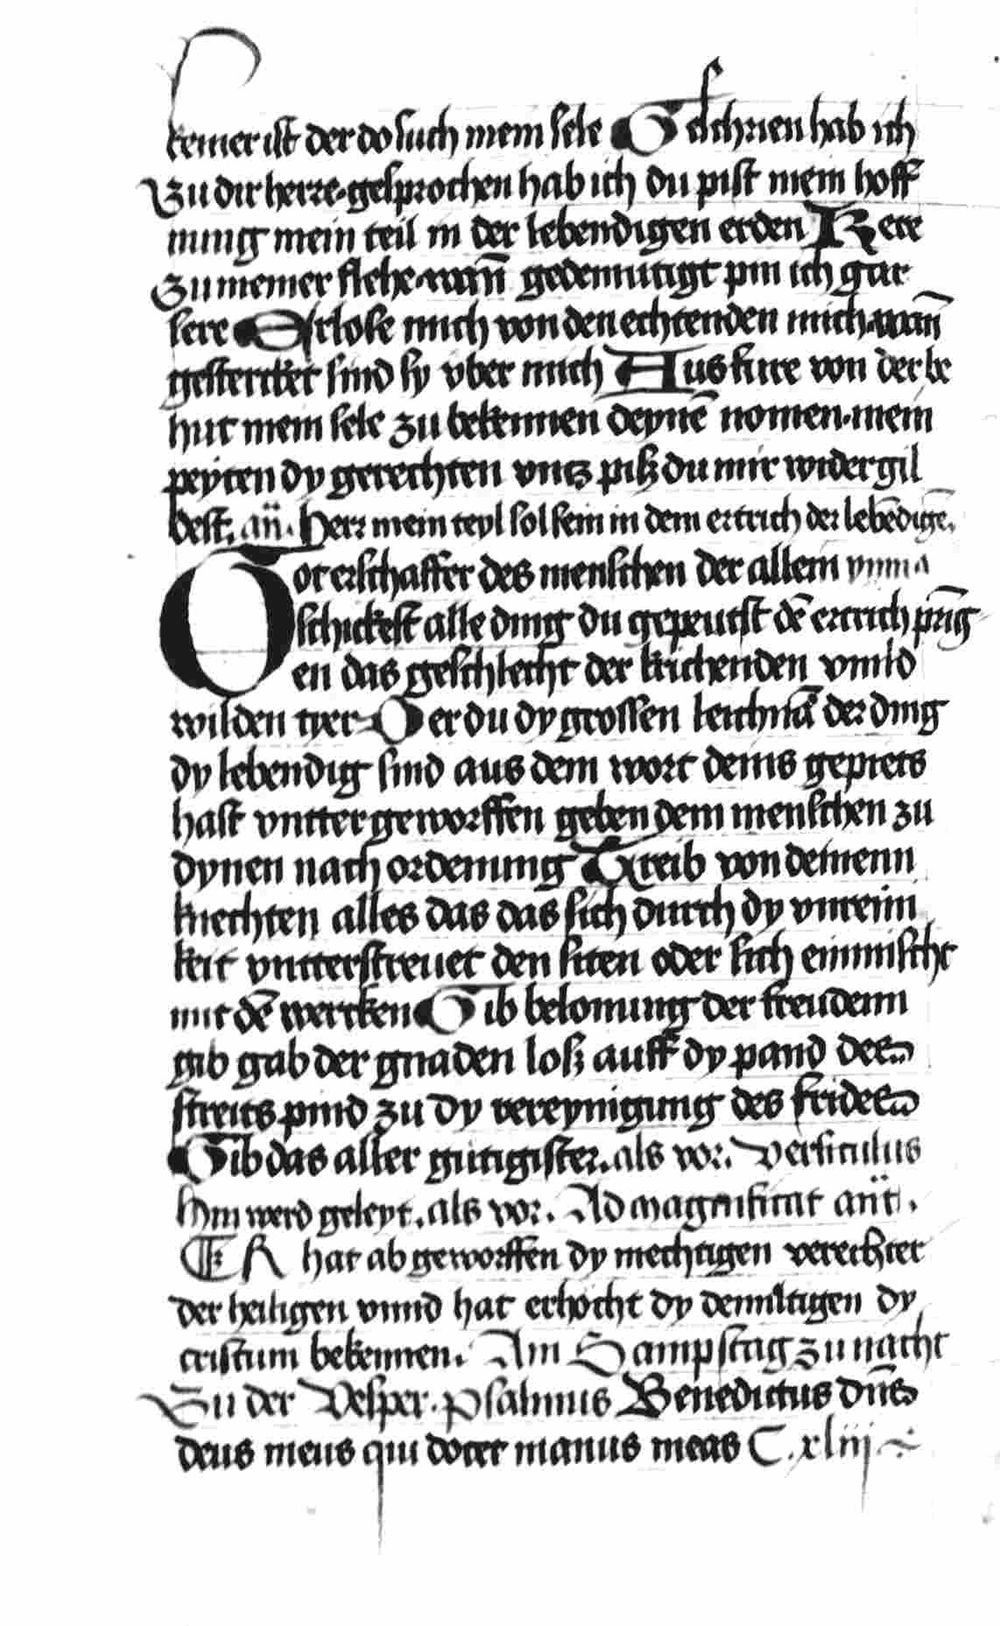 keiner ist der do such mein sele Geschrien hab ich
Zu dir herre. gesprochen hab ich du pist mein hoff
nung mein teil in der lebendigen erden Kere
zu meiner flehe. wañ gedemutigt pin ich gar
sere Erlose mich von den echtenden mich. wañ
gestercket sind sy vber mich Ausfure von der be
hut mein sele zu bekennen deynē nomen. mein
peyten dy gerechten vntz pisz du mir widergil
dest. añ. Herr mein teyl sol sein in dem ertrich der lebēdigē.
Got erschaffer des menschen der allein
schickest alle ding du gepeutst dē ertrich prīg
en das geschlecht der krichenden vnnd
wilden tyer Der du dy grossen leichnā der ding
dy lebendig sind aus dem wort deins gepiets
hast vntter geworffen geben dem menschen zu
dynen nach ordenung Treib von deinenn
knechten alles das das sich durch dy vnrein
keit vntterstreuet den siten oder sich einmischt
mit dē wercken Gib belonung der freudenn
gib gab der gnaden losz auff dy pand des
streits pind zu dy vereynigung des frides
Gib das aller gutigister. als vor. Versiculus
Hin werd geleyt. als vor. Ad magnificat añt.
ER hat ab geworffen dy mechtigen verechter
der heiligen vnnd hat erhocht dy demutigen dy
cristum bekennen. Am Sampstag zu nacht
Zu der Vesper. psalmus Benedictus dñs
deus meus qui docet manus meas C. xliij